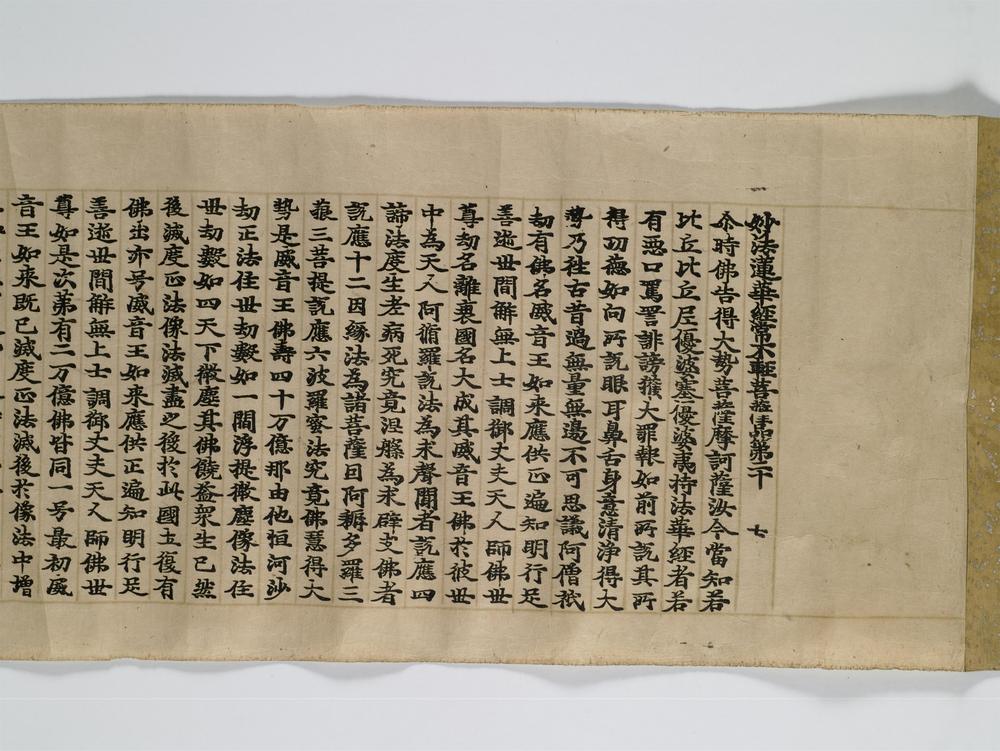 妙法蓮華經常不輕菩薩品第二十　七
尒時佛告得大勢菩薩摩訶薩汝今當知若
比丘比丘尼優婆塞優婆夷持法華經者若
有惡口罵詈誹謗獲大罪報如前所說其所
得功德如向所說眼耳鼻舌身意清淨得大
勢乃往古昔過無量無邊不可思議阿僧祇
劫有佛名威音王如來應供正遍知明行足
善逝世間解無上士調御丈夫天人師佛世
尊劫名離衰國名大成其威音王佛於彼世
中為天人阿脩羅說法為求聲聞者說應四
諦法度生老病死究竟涅槃為求辟支佛者
說應十二因緣法為諸菩薩因阿耨多羅三
藐三菩提說應六波羅蜜法究竟佛慧得大
勢是威音王佛壽四十万億那由他恒河沙
劫正法住世劫數如一閻浮提微塵像法住
世劫數如四天下微塵其佛饒益衆生已然
後滅度正法像法滅盡之後於此國土復有
佛出亦号威音王如來應供正遍知明行足
善逝世間解無上士調御丈夫天人師佛世
尊如是次第有二万億佛皆同一号最初威
音王如來既已滅度正法滅後於像法中增